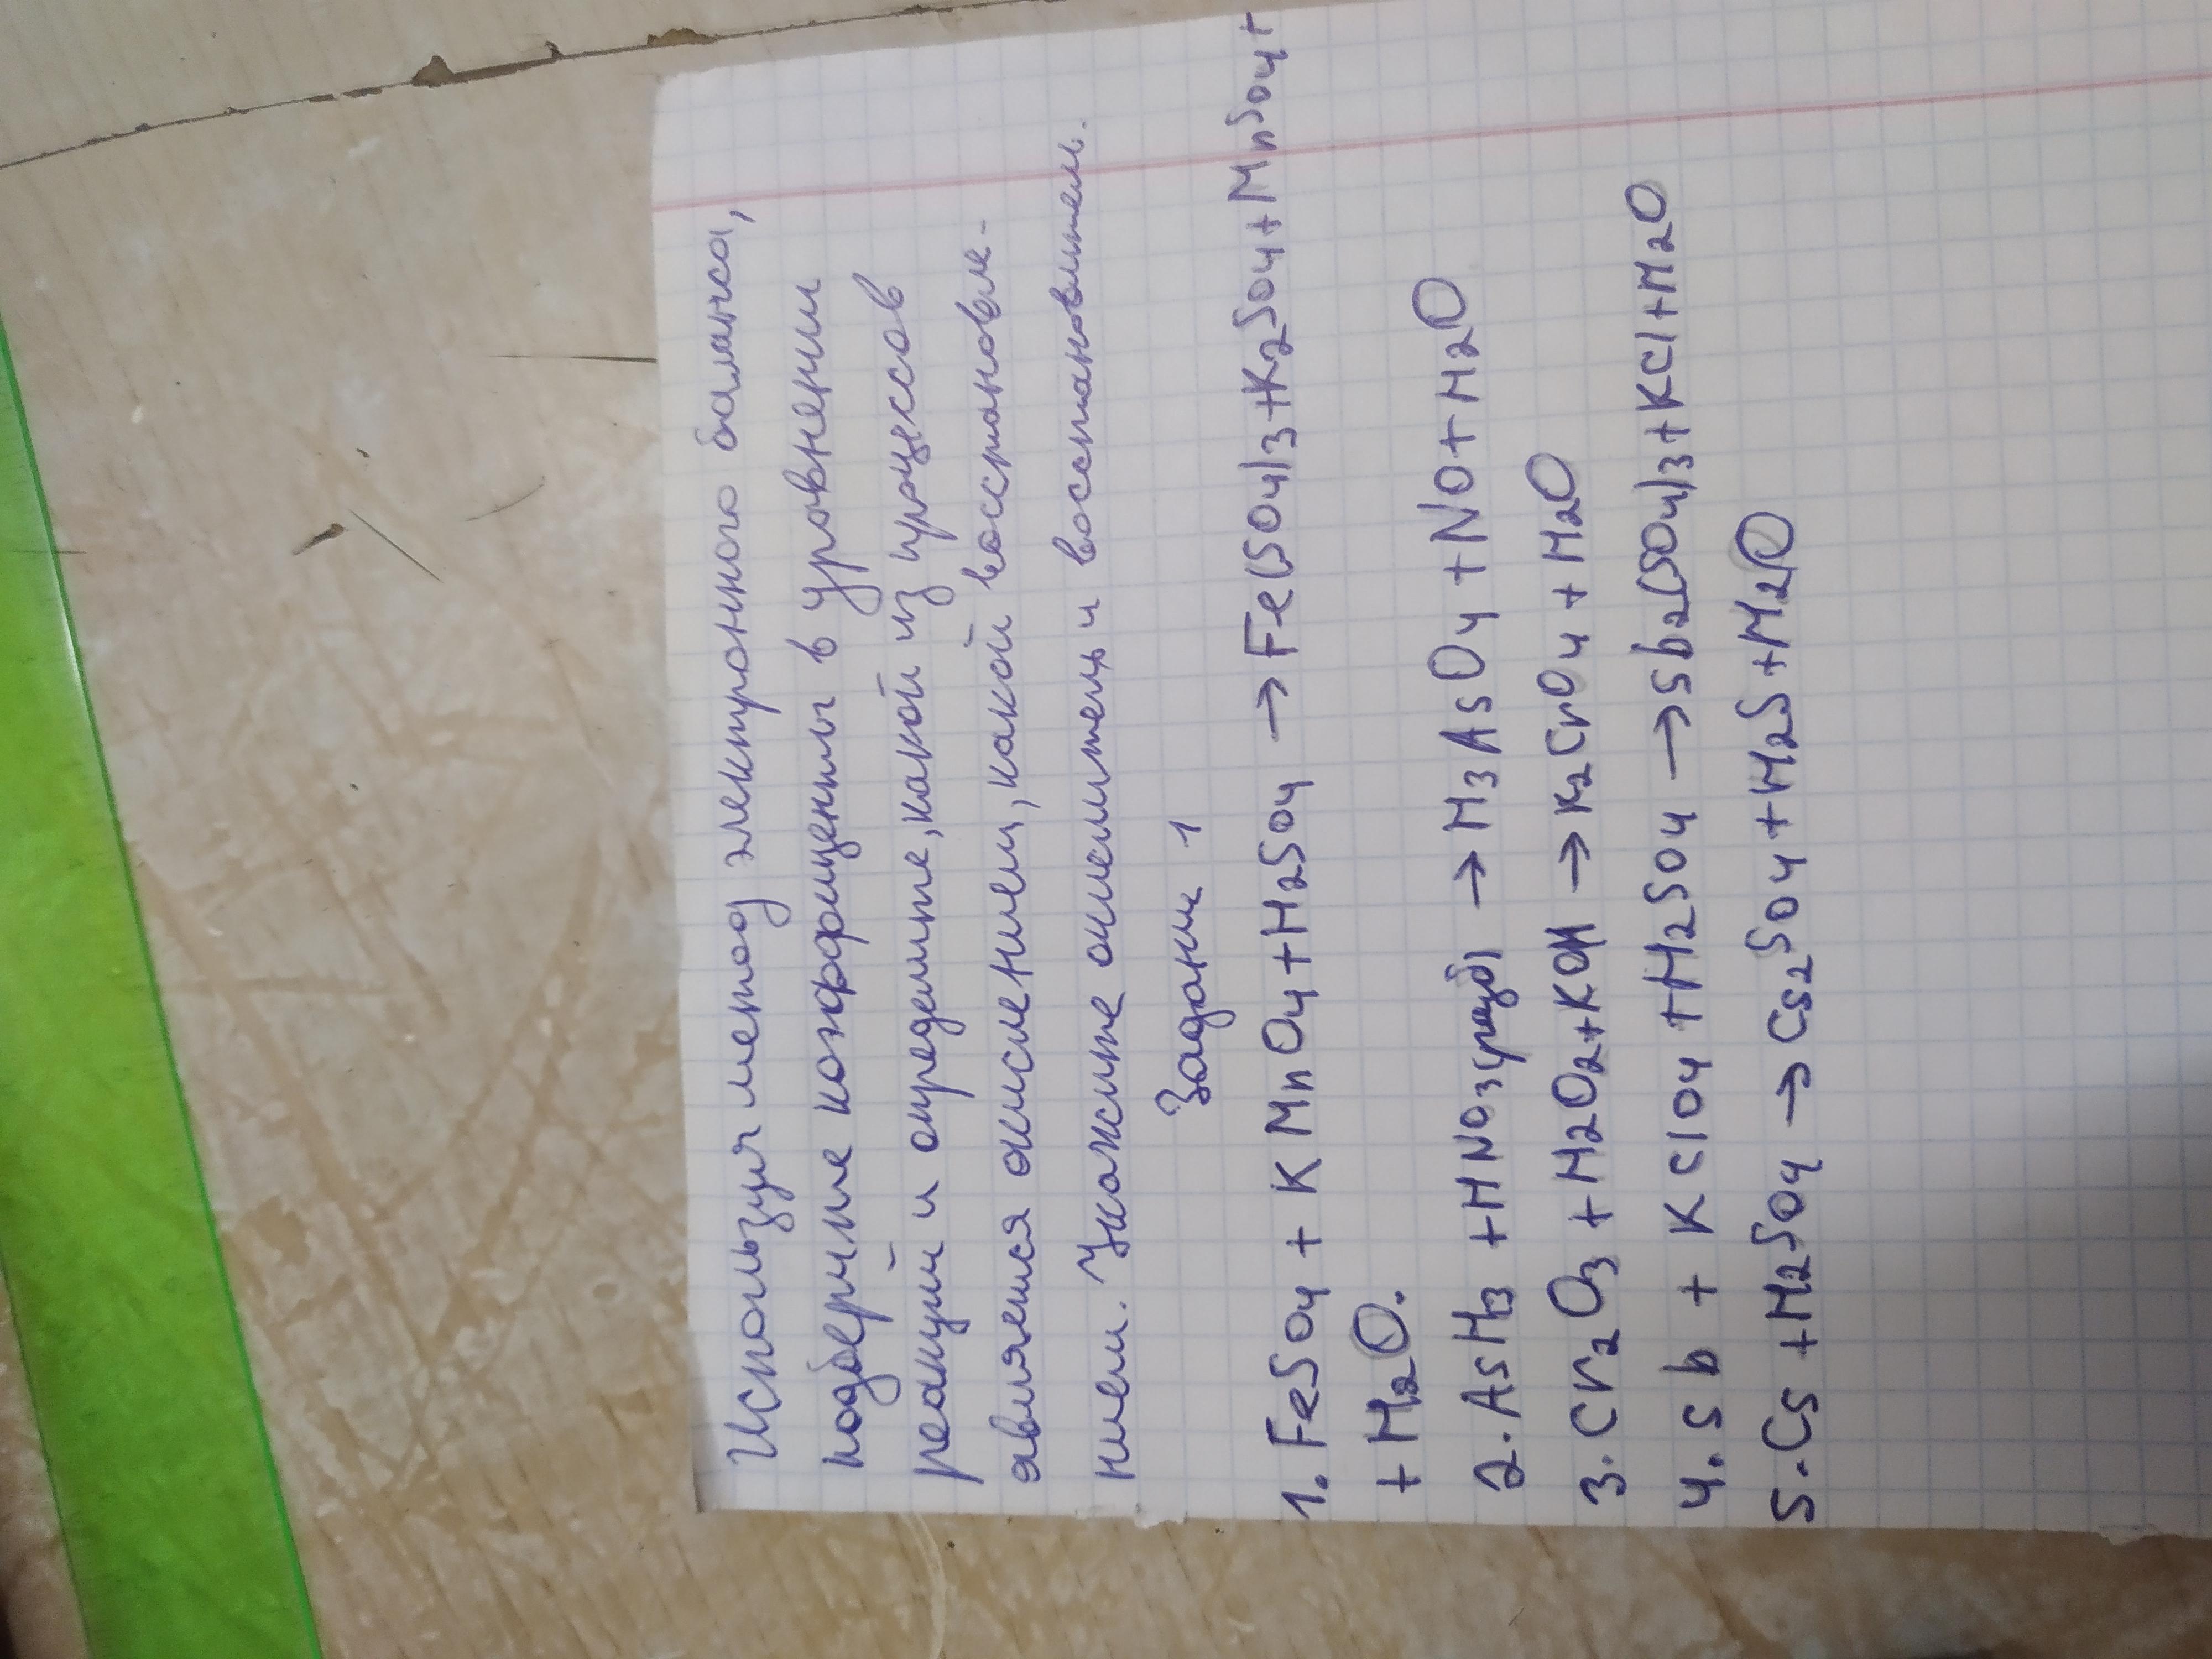 Используя метод электронного баланса,
подберите коэффициенты в уровнении
реакций и определите, какой из процессов
является окислением, какой восстановле-
нием. Укажите окислитель и восстановитель.
Задание 1
1. FeSO4 + KMnO4 + H2SO4 → Fe(SO4)3 + K2SO4 + MnSO4 +
+ H2O.
2. AsH3 + HNO3(разб) → H3AsO4 + NO + H2O
3. Cr2O3 + H2O2 + KOH → K2CrO4 + H2O
4. Sb + KClO4 + H2SO4 → Sb2(SO4)3 + KCl + H2O
5. Cs + H2SO4 → Cs2SO4 + H2S + H2O